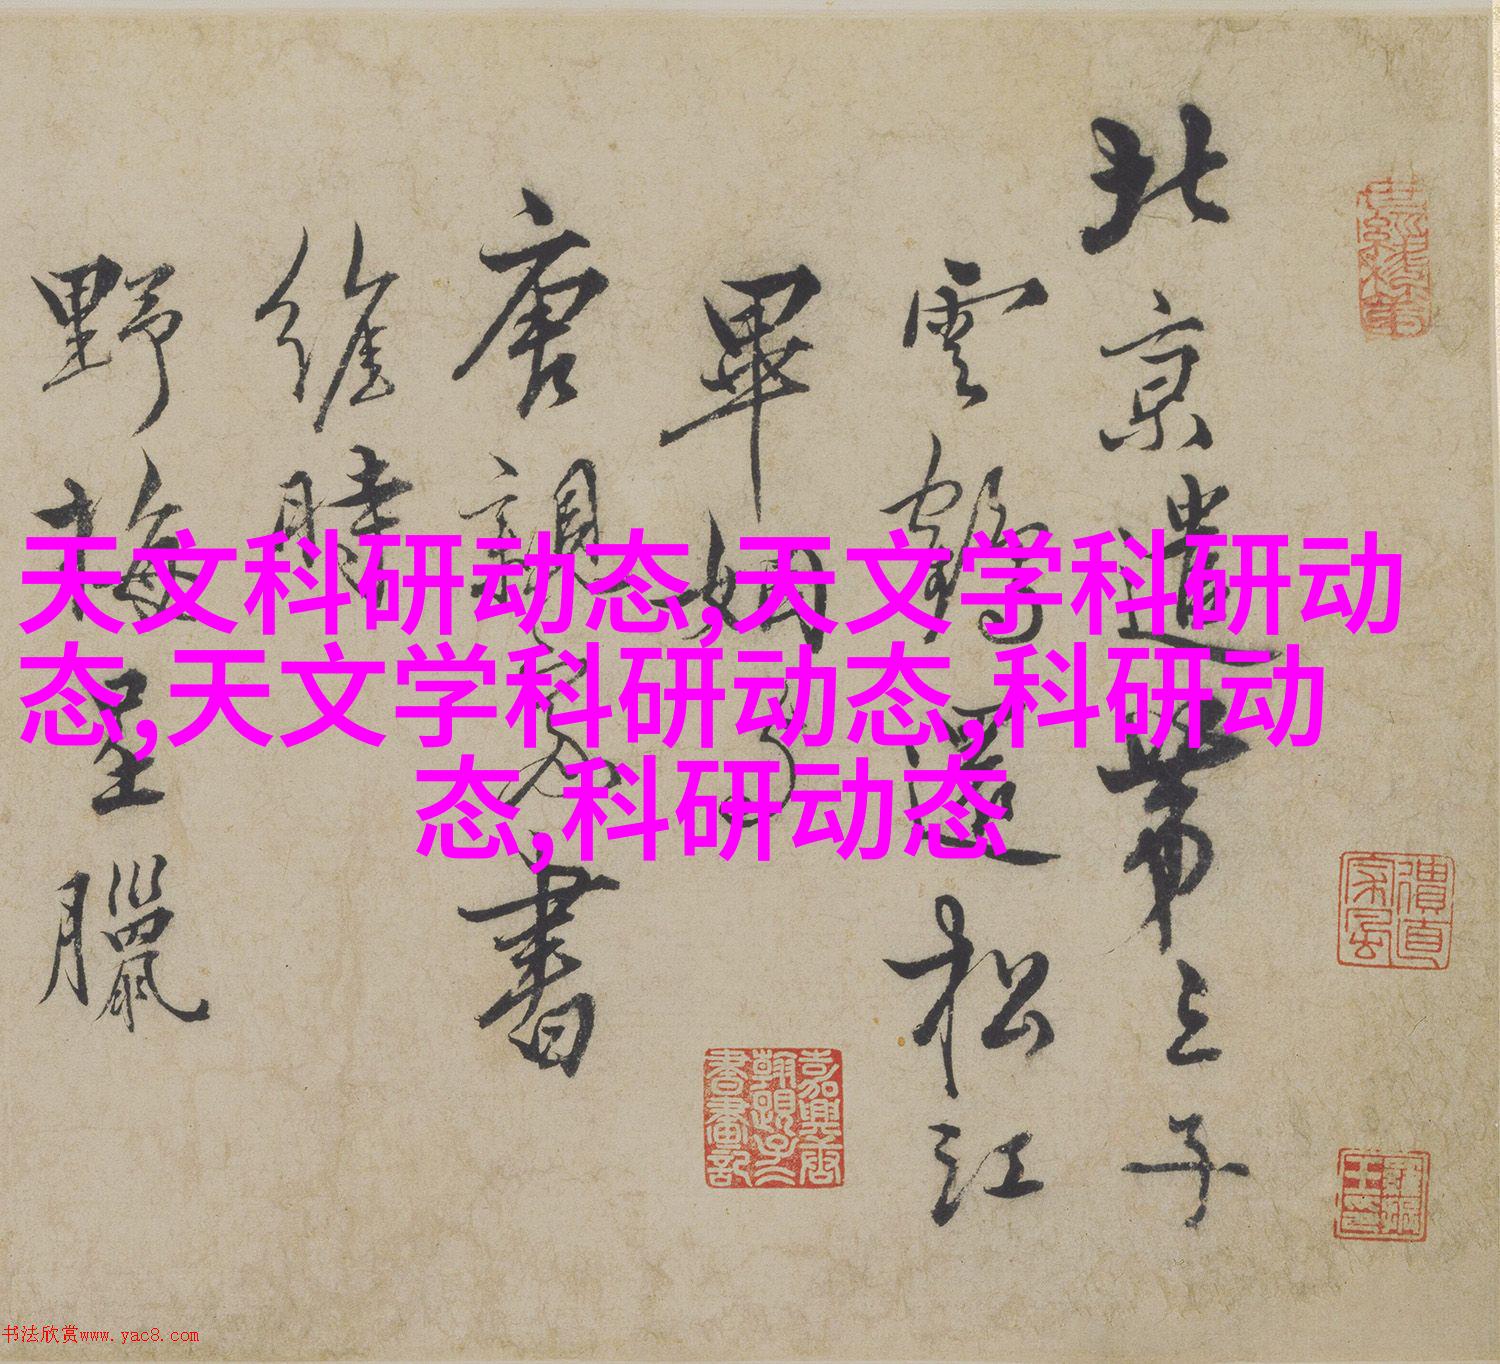 天文科研动态,天文学科研动
态,天文学科研动态,科研动
态,科研动态
北京遣第三子
雲鶴還松江
畢姻
唐親家書
維時
野梅呈臘
书法欣赏www.yac8.com